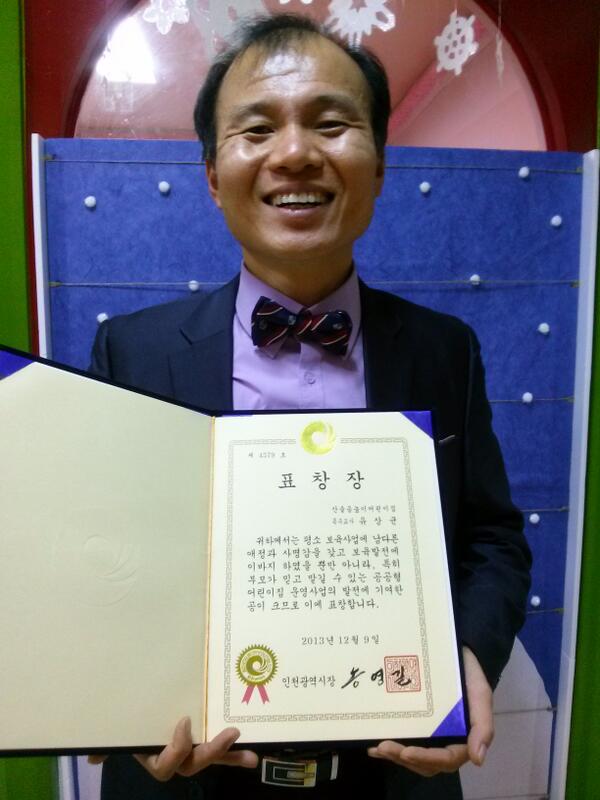 제 4579 호
표 창 장
산솔꿈놀이어린이집
보육교사 유 상 균
귀하께서는 평소 보육사업에 남다른
애정과 사명감을 갖고 보육발전에
이바지 하였을 뿐만 아니라, 특히
부모가 믿고 맡길 수 있는 공공형
어린이집 운영사업의 발전에 기여한
공이 크므로 이에 표창합니다.
2013년 12월 9일
인천광역시장 송 영 길